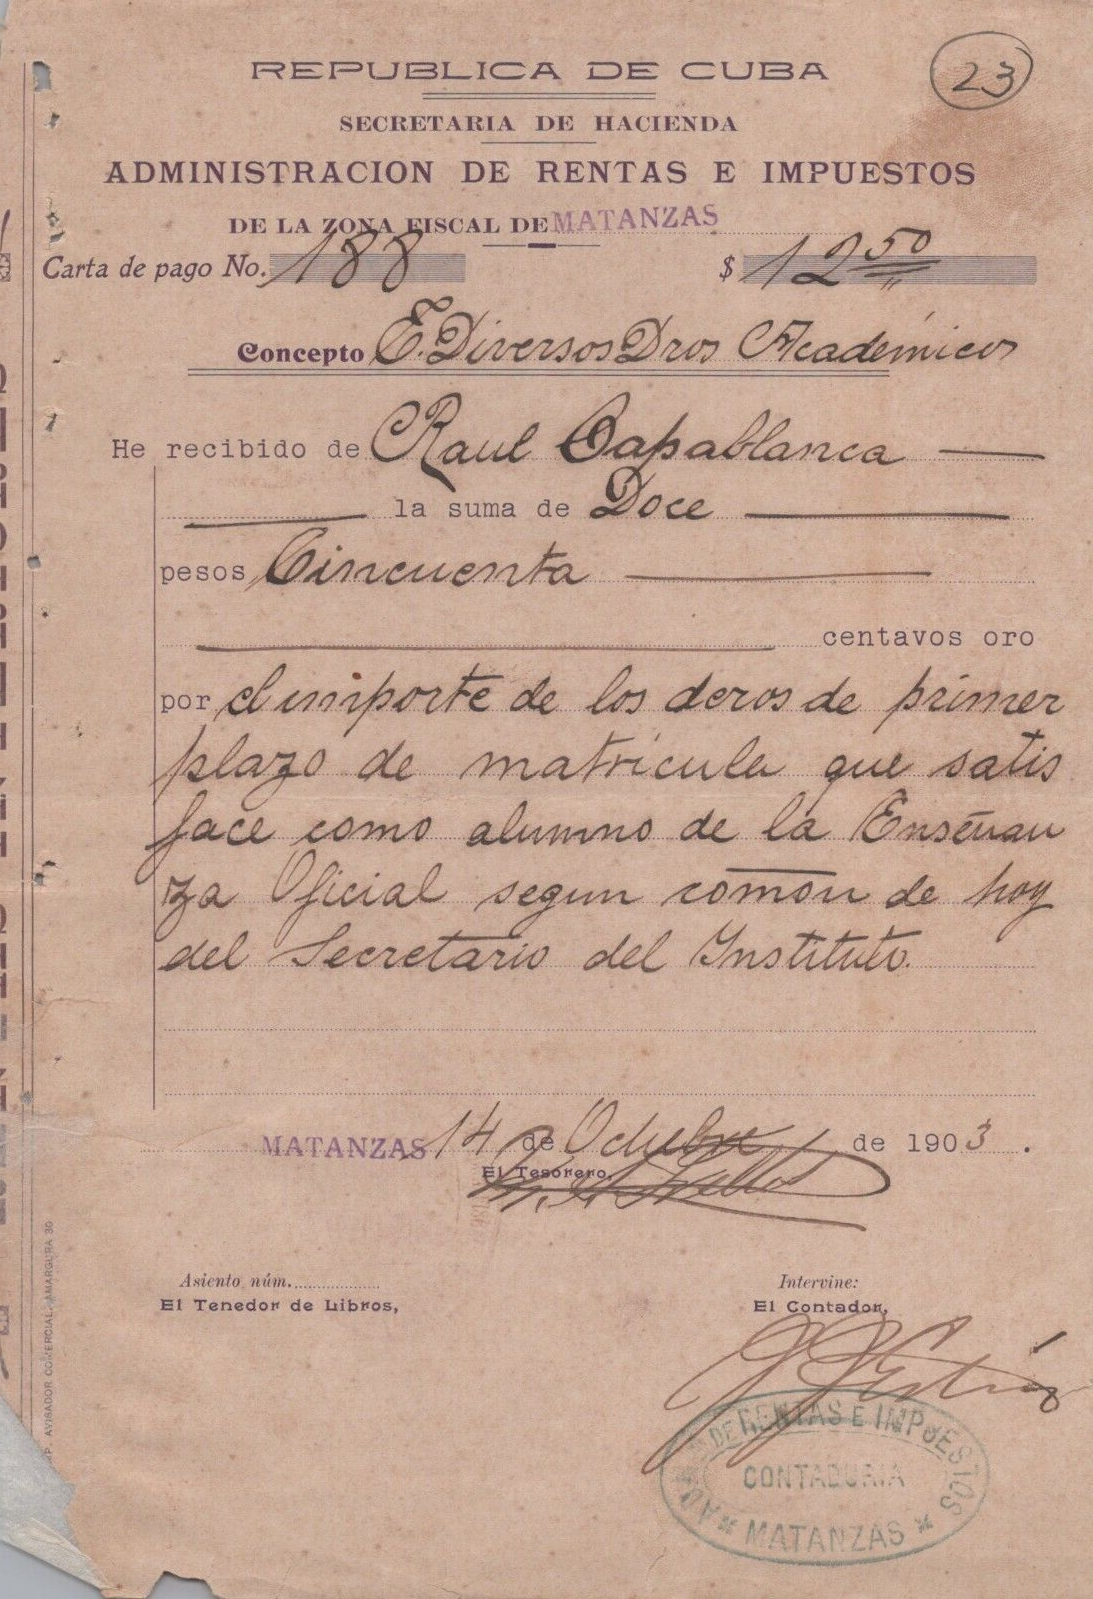 23
REPUBLICA DE CUBA
SECRETARIA DE HACIENDA
ADMINISTRACION DE RENTAS E IMPUESTOS
DE LA ZONA FISCAL DE MATANZAS
Carta de pago No. 188 $ 12 50
Concepto E. Diversos Dros Académicos
He recibido de Raul Capablanca
la suma de Doce
pesos Cincuenta
centavos oro
por el importe de los deros de primer
plazo de matricula que satis
face como alumno de la Enseñan
za Oficial segun comon de hoy
del Secretario del Instituto.
MATANZAS 14 de Octubre de 1903.
El Tesorero,
Asiento núm.
El Tenedor de Libros,
Intervine:
El Contador,
ADM DE RENTAS E IMPUESTOS
CONTADURIA
* MATANZAS *
P. AVISADOR COMERCIAL, AMARGURA 30